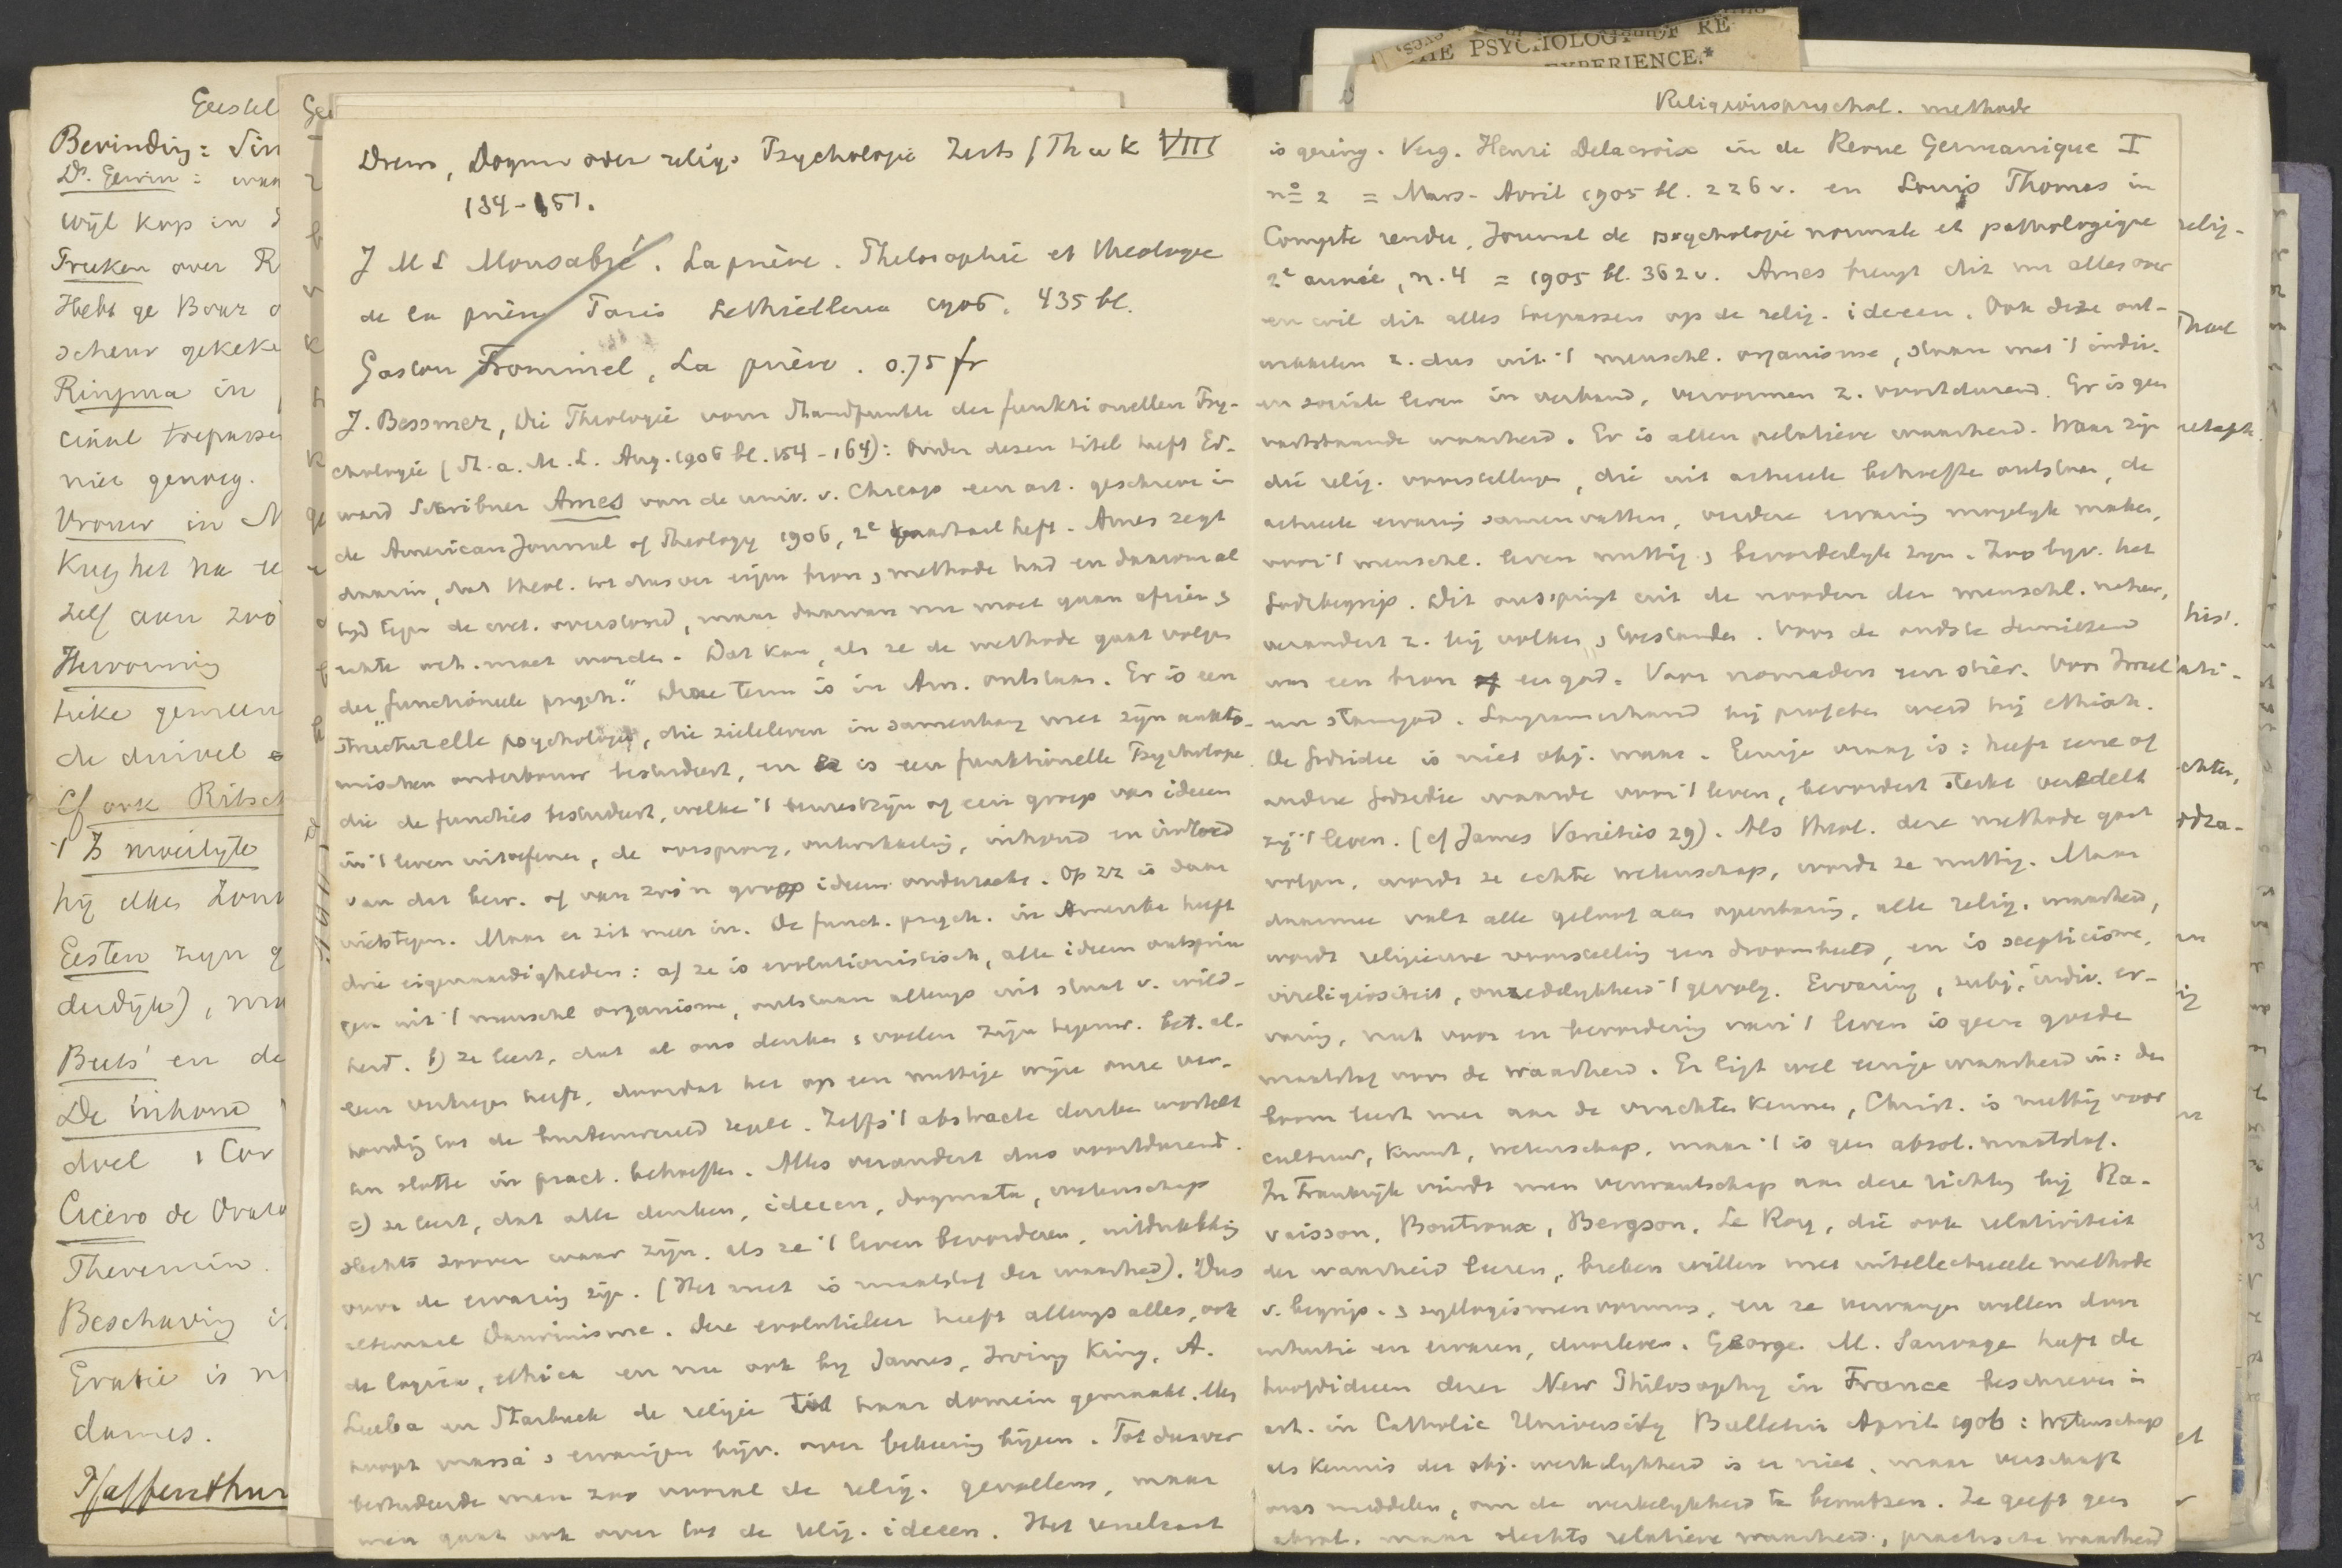 THE PSYCHOLOGY OF RE
EXPERIENCE.*
Religionspsychol. methode
Geestel
Bevinding:
Ds. Gerwin:
wijl kop in
over R
Hebt ge
scheur gekeke
Ringma in
niet genoeg.
Vrouw in
Krijg het na
zelf aan zoo
Hervorming
de duivel
Cf ook Ritsch
't Is moeilijk
hij elke Zon
Eesten zijn
Beets' en de
De inhoud
doel 1 Cor
Cicero de Orato
Theremin.
Beschaving is
Gratie is
dames.
Drews, Dogma oder relig. Psychologie Zeits f Th u K VIII
134-151.
J M L Monsabré. La prière. Philosophie et théologie
de la prière Paris Lethielleux 1906. 435 bl.
Gaston Frommel, La prière. 0.75 fr
J. Bessmer, Die Theologie vom Standpunkte der funktionellen Psy-
chologie (St. a. M. L. Aug. 1906 bl. 154-164): Onder dezen titel heeft Ed-
ward Scribner Ames van de univ. v. Chicago een art. geschreven in
de American Journal of Theology 1906, 2e heft. Ames zegt
daarin, dat theol. tot dusver eigen bron, methode had en daarom al
tijd tegen de wet. overstond, maar daarvan nu moet gaan afzien,
echte wet. moet worden. Dat kan, als ze de methode gaat volgen
der functioneele psych." Deze term is in Am. ontstaan. Er is een
"structurelle psychologie, die zieleleven in samenhang met zijn anato-
mischen onderbouw bestudeert, en er is een funktionelle Psychologie
die de functies bestudeert, welke 't bewustzijn of een groep van ideeen
in 't leven uitoefenen, de oorsprong, ontwikkeling, inhoud en invloed
van dat bew. of van zoo'n groep ideeen onderzoekt. Op zz is daar
niets tegen. Maar er zit meer in. De funct. psych. in Amerika heeft
drie eigenaardigheden: a) ze is evolutionistisch, alle ideeen ontsprin
gen uit 't menschel organisme, ontstaan allengs uit staat v. wild-
heid. b) ze leert, dat al ons denken, voelen zijn tegenw. bet. al-
leen verkregen heeft, doordat het op een nuttige wijze onze ver-
houding tot de buitenwereld regelt. Zelfs 't abstracte denken wortelt
ten slotte in pract. behoeften. Alles verandert dus voortdurend.
c) ze leert, dat alle denken, ideeen, dogmata, wetenschap
slechts zoover waar zijn, als ze 't leven bevorderen, uitdrukking
voor de ervaring zijn. (Het nut is maatstaf der waarheid). Dus
altemaal Darwinisme. Deze evolutieleer heeft allengs alles, ook
de logica, ethica en nu ook by James, Irving King, A.
Leuba en Starbuck de religie tot haar domein gemaakt. Men
hoopt massa's ervaringen bijv. over bekeering bijeen. Tot dusver
bestudeerde men zoo vooral de relig. gevoelens, maar
men gaat ook over tot de relig. ideeen. Het resultaat
is gering. Verg. Henri Delacroix in de Revue Germanique I
no 2 = Mars-Avril 1905 bl. 226 v. en Louis Thomas in
Compte rendu, Journal de psychologie normale et pathologique
2e année, n. 4 = 1905 bl. 362 v. Ames brengt dit nu alles over
en wil dit alles toepassen op de relig. ideeen. Ook deze ont-
wikkelen z. dus uit 't menschel. organisme, staan met 't indiv.
en sociale leven in verband, vervormen z. voortdurend. Er is geen
vaststaande waarheid. Er is alleen relatieve waarheid. Waar zijn
die relig. voorstellingen, die uit actueele behoefte ontstaan, de
actueele ervaring samenvatten, verdere ervaring mogelijk maken,
voor 't menschel. leven nuttig, bevorderlijk zijn. Zoo bijv. het
Godsbegrip. Dit ontspringt uit de nooden der menschel. natuur,
verandert z. bij volken, toestanden. Voor de oudste Semieten
was een bron een god. Voor nomaden een stier. Voor Israel
een stamgod. Langzamerhand bij profeten werd hij ethisch.
De Godsidee is niet obj. waar. Eenige vraag is: heeft eene of
andere Godsidee waarde voor 't leven, bevordert sterkt veredelt
zij 't leven. (cf James Varieties 29). Als theol. deze methode gaat
volgen, wordt ze echte wetenschap, wordt ze nuttig. Maar
daarmee valt alle geloof aan openbaring, alle relig. waarheid,
wordt religieuse voorstelling een droombeeld, en is scepticisme,
irreligiositeit, onzedelijkheid 't gevolg. Ervaring, subj., indiv. er-
varing, nut voor en bevordering van 't leven is geen goede
maatstaf voor de waarheid. Er ligt wel eenige waarheid in: den
boom leert men aan de vruchten kennen, Christ. is nuttig voor
cultuur, kunst, wetenschap, maar 't is geen absol. maatstaf.
In Frankrijk vindt men verwantschap aan deze richting bij Ra-
vaisson, Boutroux, Bergson, Le Roy, die ook relativiteit
der waarheid leeren, breken willen met intellectueele methode
v. begrips- , syllogismenvorming, en ze vervangen willen door
intuitie en ervaren, doorleven. George M. Sauvage heeft de
hoofdideeen dezer New Philosophy in France beschreven in
art. in Catholic University Bulletin April 1906: Wetenschap
als kennis der obj. werkelijkheid is er niet, maar verschaft
ons middelen, om de werkelijkheid te benutzen. Ze geeft geen
absol. maar slechts relatieve waarheid, practische waarheid